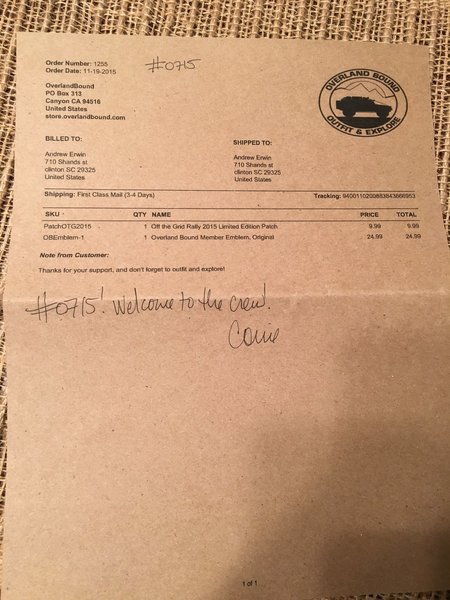 Order Number: 1255
Order Date: 11-19-2015
#0715
OverlandBound
PO Box 313
Canyon CA 94516
United States
store.overlandbound.com
OVERLAND BOUND
OUTFIT & EXPLORE
BILLED TO:
Andrew Erwin
710 Shands st
clinton SC 29325
United States
SHIPPED TO:
Andrew Erwin
710 Shands st
clinton SC 29325
United States
Shipping: First Class Mail (3-4 Days) Tracking: 9400110200883843666953
SKU QTY NAME PRICE TOTAL
PatchOTG2015 1 Off the Grid Rally 2015 Limited Edition Patch 9.99 9.99
OBEmblem-1 1 Overland Bound Member Emblem, Original 24.99 24.99
Note from Customer:
Thanks for your support, and don't forget to outfit and explore!
#0715! Welcome to the crew!
1 of 1